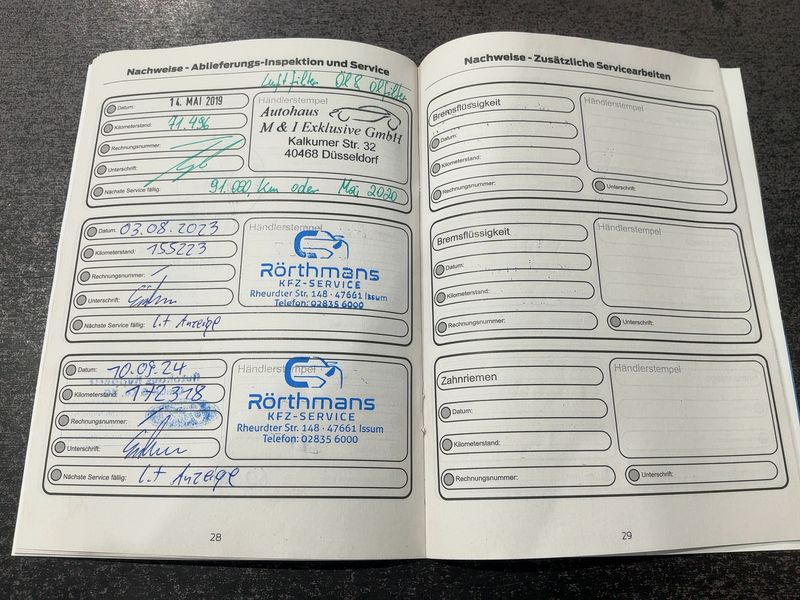 Nachweise - Ablieferungs-Inspektion und Service
Luftfilter Öl & Ölfilter
Datum: 14. MAI 2019
Kilometerstand: 71.496
Rechnungsnummer:
Unterschrift:
Nächste Service fällig: 91.000 Km oder Mai 2020
Händlerstempel
Autohaus
M & I Exklusive GmbH
Kalkumer Str. 32
40468 Düsseldorf
Datum: 03.08.2023
Kilometerstand: 155223
Rechnungsnummer:
Unterschrift:
Nächste Service fällig: l.t Anzeige
Händlerstempel
Rörthmans
KFZ-SERVICE
Rheurdter Str. 148 · 47661 Issum
Telefon: 02835 6000
Datum: 10.09.24
Kilometerstand: 172318
Rechnungsnummer:
Unterschrift:
Nächste Service fällig: l.t Anzeige
Händlerstempel
Rörthmans
KFZ-SERVICE
Rheurdter Str. 148 · 47661 Issum
Telefon: 02835 6000
28
Nachweise - Zusätzliche Servicearbeiten
Bremsflüssigkeit
Datum:
Kilometerstand:
Rechnungsnummer:
Händlerstempel
Unterschrift:
Bremsflüssigkeit
Datum:
Kilometerstand:
Rechnungsnummer:
Händlerstempel
Unterschrift:
Zahnriemen
Datum:
Kilometerstand:
Rechnungsnummer:
Händlerstempel
Unterschrift:
29